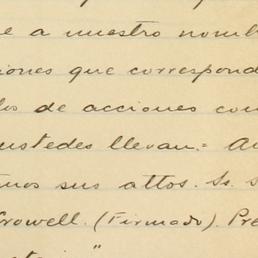 e a nuestro nomb
iones que correspond
los de acciones con
ustedes llevan.= A
mos sus attos. Ss. s
Crowell. (Firmado). Pre